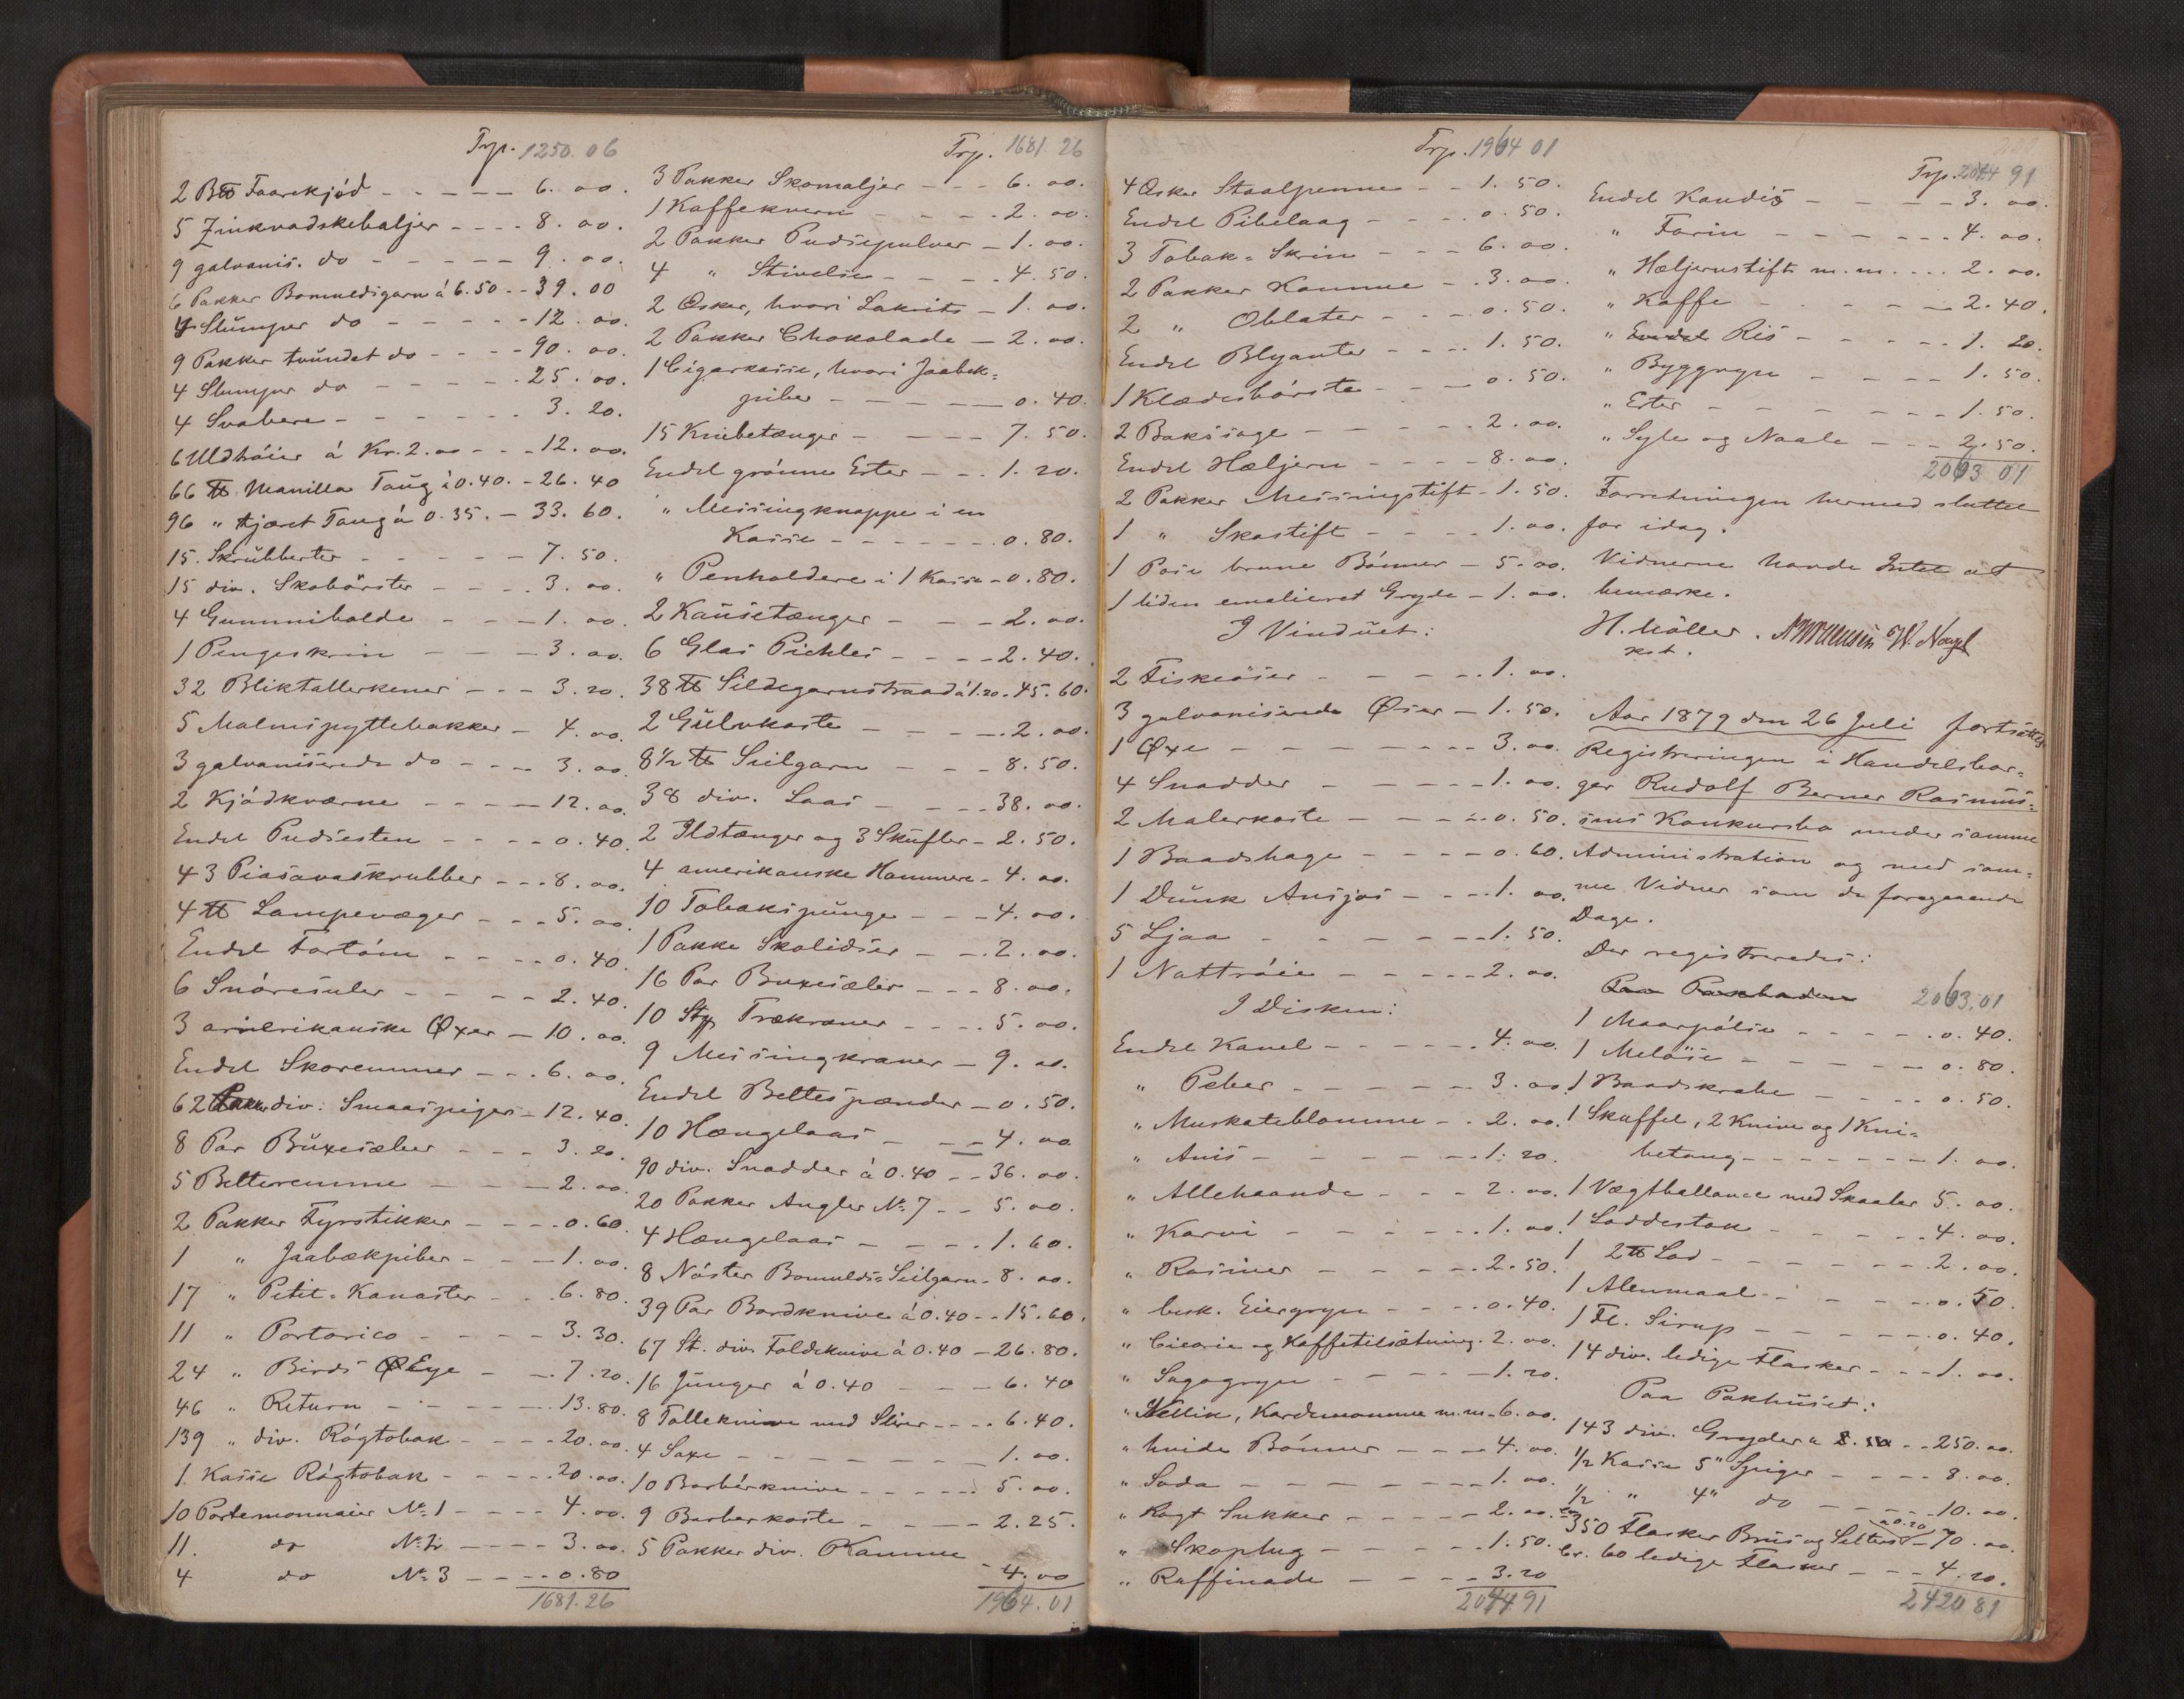 Trp. 1250.06
2 B℔ Faarekjød - - - - - 6. 00.
5 Zinkvadskebaljer - - - - 8. 00.
9 galvanis. do - - - - - 9. 00.
6 Pakker Bomuldsgarn á 6.50 - - 39. 00
4 Slumper do - - - - - 12. 00.
9 Pakker tvundet do - - - - 90. 00.
4 Slumper do - - - - - 25. 00.
4 Svabere - - - - - - 3. 20.
6 Uldtrøier á Kr. 2.00 - - - 12. 00.
66 ℔ Manilla Taug á 0.40. - 26. 40
96 " tjæret Taug á 0.35. - 33. 60.
15. Skrubberter - - - - - 7. 50.
15 div. Skobørster - - - - 3. 00.
4 Gummibolde - - - 1. 00.
1 Pengeskrin - - - - 3. 00.
32 Bliktallerkener - - - 3. 20.
5 Malmspyttebakker - 4. 00.
3 galvaniserede do - - - 3. 00.
2 Kjødkværne - - - - 12. 00.
Endel Pudsesten - - - - 0. 40.
43 Piasavaskrubber - - - 8. 00.
4 ℔ Lampevæger - - - 5. 00.
Endel Fortøm - - - - 0. 40.
6 Snøresuler - - - - 2. 40.
3 amerikanske Øxer - 10. 00.
Endel Skoremmer - - - 6. 00.
62 div. Smaaspiger - 12. 40.
8 Par Buxesæler - - - 3. 20.
5 Belteremme - - - - 2. 00.
2 Pakker Fyrstikker - - - - 0. 60.
1 " Jaabækpiber - - - 1. 00.
17 " Petit-Kanaster - - - 6. 80.
11 " Portorico - - - - - 3. 30.
24 " Birds Eye - - - 7. 20.
46 " Return - - - - - 13. 80.
139 " div. Røgtobak - - - - 20. 00.
1. Kasse Røgtobak - - - - 20. 00.
10 Portemonnaier No. 1 - - - - 4. 00.
11. do No. 2 - - - - 3. 00.
4 do No. 3 - - - - 0. 80
1681. 26
Trp. 1681. 26
3 Pakker Skomaljer - - - 6. 00.
1 Kaffekvern - - - - 2. 00.
2 Pakker Pudsepulver - 1. 00.
4 " Stivelse - - - - 4. 50.
2 Æsker, hvori Lakrits - 1. 00.
2 Pakker Chokolade - 2. 00.
1 Cigarkasse, hvori Jaabek-
piber - - - - - - 0. 40.
15 Knibetænger - - - - - 7. 50.
Endel grønne Erter - - - 1. 20.
" Messingknappe i en
Kasse - - - - - - 0. 80.
" Penholdere i 1 Kasse - 0. 80.
2 Kausetænger - - - 2. 00.
6 Glas Pickles - - - - 2. 40.
38 ℔ Sildegarnstraad á 1.20 - 45. 60.
2 Gulvkoste - - - - - 2. 00.
8 1/2 ℔ Seilgarn - - - 8. 50.
38 div. Laas - - - - 38. 00.
2 Ildtænger og 3 Skufler - 2. 50.
4 amerikanske Hammere - 4. 00.
10 Tobakspunge - - - 4. 00.
1 Pakke Skolidser - - - 2. 00.
16 Par Buxesæler - - - 8. 00.
10 Trækraner - - - - 5. 00.
9 Messingkraner - 9. 00.
Endel Beltespænder - 0. 50.
10 Hængelaas - - - 4. 00
90 div. Snadder á 0.40 - - 36. 00.
20 Pakker Angler No. 7 - - 5. 00.
4 Hængelaas - - - - 1. 60.
8 Nøster Bomulds-Seilgarn - 8. 00.
39 Par Bordknive á 0.40 - - 15. 60.
67 St. div. Foldeknive á 0.40 - 26. 80.
16 Junger á 0.40 - - - - 6. 40
8 Tolleknive med Slirer - - - - 6. 40.
4 Saxe - - - - - - 1. 00.
10 Barbérknive - - - - - 5. 00.
9 Barberkoste - - - - - 2. 25.
5 Pakker div. Kamme
- 4. 00
1964. 01
Trp. 1964 01
4 Æsker Staalpenne - - 1. 50.
Endel Pibelaag - - - - 0. 50.
3 Tobak-Skrin - - - 6. 00.
2 Pakker Kamme - . 3. 00.
2 " Oblater - - - 0. 50.
Endel Blyanter - - - 1. 50.
1 Klædesbørste - - - 0. 50.
2 Bakssage - - - - - 2. 00.
Endel Hæljern - - - - 8. 00.
2 Pakker Messingstift - 1. 50.
1 " Skostift - - - - 1. 00.
1 Pose brune Bønner - 5. 00.
1 liden emalieret Gryde - 1. 00.
I Vinduet:
2 Fiskeøser - - - - - 1. 00.
3 galvaniserede Øser - 1. 50.
1 Øxe - - - - - - - 3. 00.
4 Snadder - - - - - 1. 00.
2 Malerkoste - - - - 0. 50.
1 Baadshage - - - - 0. 60.
1 Dunk Ansjos - - - 1. 00.
5 Ljaa - - - - - - 1. 50.
1 Nattrøie - - - - - 2. 00.
I Disken:
Endel Kanel - - - - - - 4. 00.
" Peber - - - - - - 3. 00.
" Muskateblomme - - 2. 00.
" Anis - - - - - - 1. 20.
" Allehaande - - - 2. 00.
" Karvi - - - - - - 1. 00.
" Rosiner - - - - - 2. 50.
" besk. Eiergryn - - - - 0. 40.
" Cicorie og Kaffetilsætning - 2. 00.
" Sagogryn - - - - - 1. 20.
" Nellik, Kardemomme m.m - 6. 00.
" hvide Bønner - - - 4. 00.
" Soda - - - - - - - 1. 00.
" Kogt Sukker - - - - - 2. 00.
" Skoplug - - - - - 1. 50.
" Raffinade - - - - 3. 20
2044 91
Trp. 2044 91
Endel Kandis - - - - - 3. 00.
" Farin - - - - - - - 4. 00.
" Hæljernstift m.m. - - - 2. 00.
" Kaffe - - - - - 2. 40.
" Endel Ris - - - - - 1. 20.
" Byggryn - - - - 1. 50.
" Erter - - - - - - - 1. 50.
" Syle og Naale - - - 2. 50.
2063 01
Forretningen hermed sluttet
for idag.
Vidnerne havde Intet at
bemærke.
H. Møller. W. Nagel
kst.
Aar 1879 den 26 Juli fortsattes
Registreringen i Handelsbor-
ger Rudolf Berner Rasmus-
sens Konkursbo under samme
Administration og med sam-
me Vidner som de foregaaende
Dage.
Der registreredes:
Paa Pakboden 2063.01
1 Maarpølse - - - - - - 0. 40.
1 Meløse - - - - - - 0. 80.
1 Baadskrabe - - - - 0. 50.
1 Skuffel, 2 Knive og 1 Kni-
betang - - - - - - - 1. 00.
1 Vægtballance med Skaaler 5. 00.
1 Loddestok - - - - - 4. 00.
1 2 ℔ Lod - - - - - - - 2. 00.
1 Alenmaal - - - - - 0. 50.
1 Fl. Sirup - - - - - - 0. 40.
14 div. ledige Flasker - - - 1. 00.
Paa Pakhuset:
143 div. Gryder - - 250. 00.
1/2 Kasse 5" Spiger - - - - 8. 00.
1/2 " 4" do - - - - 10. 00.
á 0.20
350 Flasker Brus og Selters - 70. 00.
Cr. 60 ledige Flasker - - - 4. 20.
2420 81